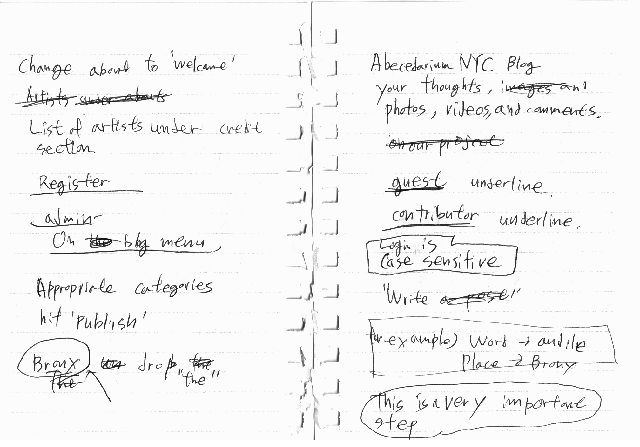 Change about to 'welcome'
Artists under abouts
List of artists under credit
section.
Register
admin
On the blog menu
Appropriate categories
hit 'publish'
Bronx drop "the"
The "the"
Abecedarium NYC Blog
your thoughts, images and
photos, videos, and comments.
on our project
guest underline
contributor underline.
Login is
case sensitive
"Write a post"
for example) Word → audile
Place → Bronx
This is a very important
step